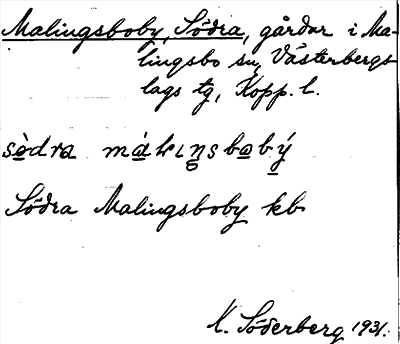 Malingsboby, Södra, gårdar i Ma-
lingsbo sn, Västerbergs
lags tg, Kopp. l.
södra málıŋsbobý
Södra Malingsboby kb
K. Söderberg 1931.